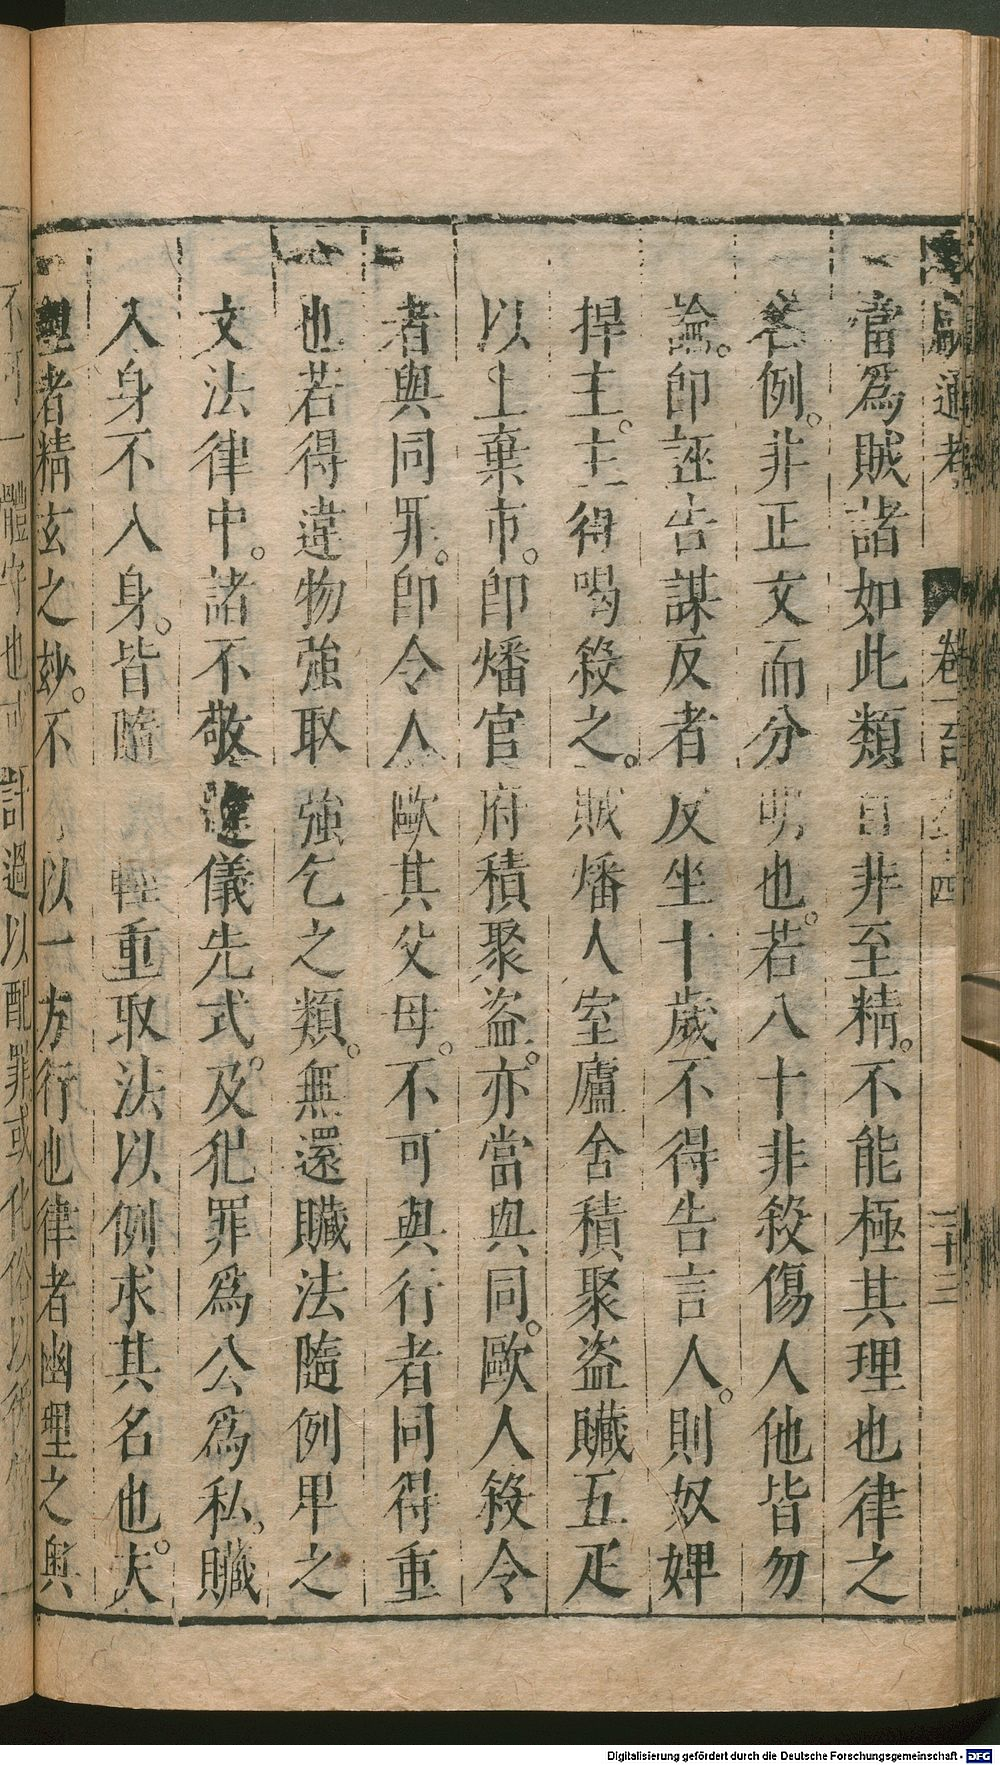 獻通考 卷一百六十四 二十三
當爲賊諸如此類自非至精。不能極其理也律之
名例。非正文而分明也。若八十非殺傷人他皆勿
論。卽誣告謀反者反坐十歲不得告言人。則奴婢
捍主。主得喝殺之。賊燔人室廬舍積聚盜贓五疋
以上棄市。卽燔官府積聚盜。亦當與同。歐人殺令
者與同罪。卽令人歐其父母。不可與行者同得重
也若得違物強取強乞之類。無還贓法隨例畀之
文法律中。諸不敬違儀先式。及犯罪爲公爲私。贓
入身不入身。皆隨輕重取法以例求其名也。夫
理者精玄之妙。不以一方行也律者幽理之奧
不可一體守也 計過以配罪或化俗以
Digitalisierung gefördert durch die Deutsche Forschungsgemeinschaft - DFG